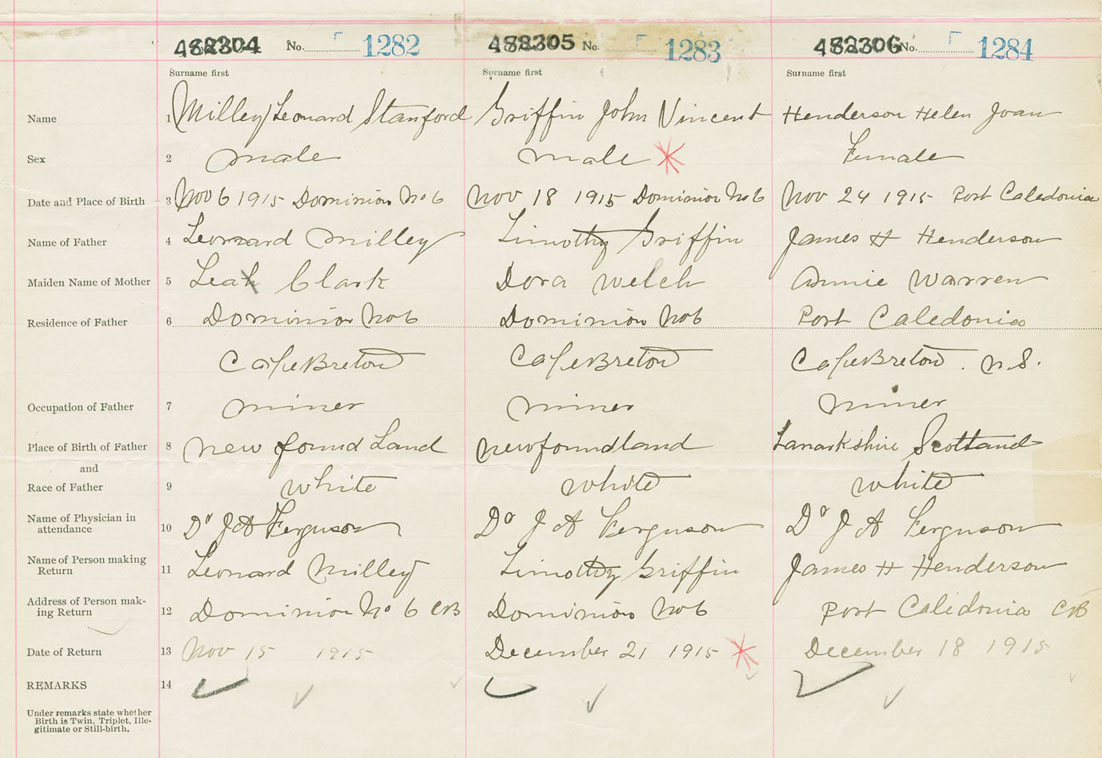 482304 No. F 1282 482305 No. F 1283 482306 No. F 1284
Surname first Surname first Surname first
Name 1 Milley Leonard Stanford Griffin John Vincent Henderson Helen Joan
Sex 2 male male Female
Date and Place of Birth 3 Nov 6 1915 Dominion No 6 Nov 18 1915 Dominion No 6 Nov 24 1915 Port Caledonia
Name of Father 4 Leonard Milley Timothy Griffin James H Henderson
Maiden Name of Mother 5 Leah Clark Dora Welch Annie Warren
Residence of Father 6 Dominion No 6 Dominion No 6 Port Caledonia
Cape Breton Cape Breton Cape Breton. N.S.
Occupation of Father 7 miner miner miner
Place of Birth of Father 8 new found Land newfoundland Lanarkshire Scotland
and
Race of Father 9 white white white
Name of Physician in
attendance 10 Dr J A Ferguson Dr J A Ferguson Dr J A Ferguson
Name of Person making
Return 11 Leonard Milley Timothy Griffin James H Henderson
Address of Person mak-
ing Return 12 Dominion No 6 CB Dominion No 6 Port Caledonia CB
Date of Return 13 Nov 15 1915 December 21 1915 December 18 1915
REMARKS 14
Under remarks state whether
Birth is Twin, Triplet, Ille-
gitimate or Still-birth.